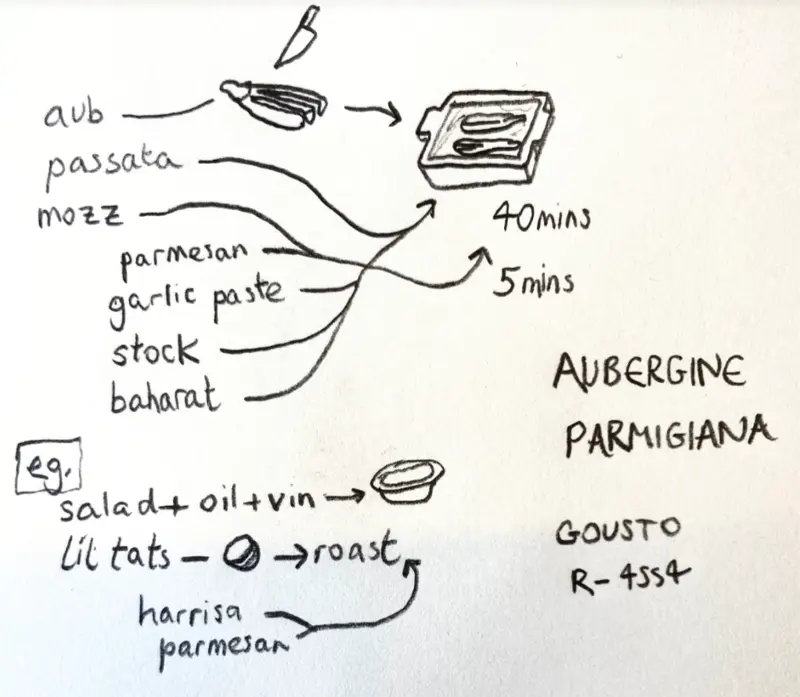 aub
passata
mozz
parmesan
garlic paste
stock
baharat
40mins
5mins
AUBERGINE
PARMIGIANA
eg.
salad + oil + vin
lil tats
roast
harrisa
parmesan
GOUSTO
R-4554